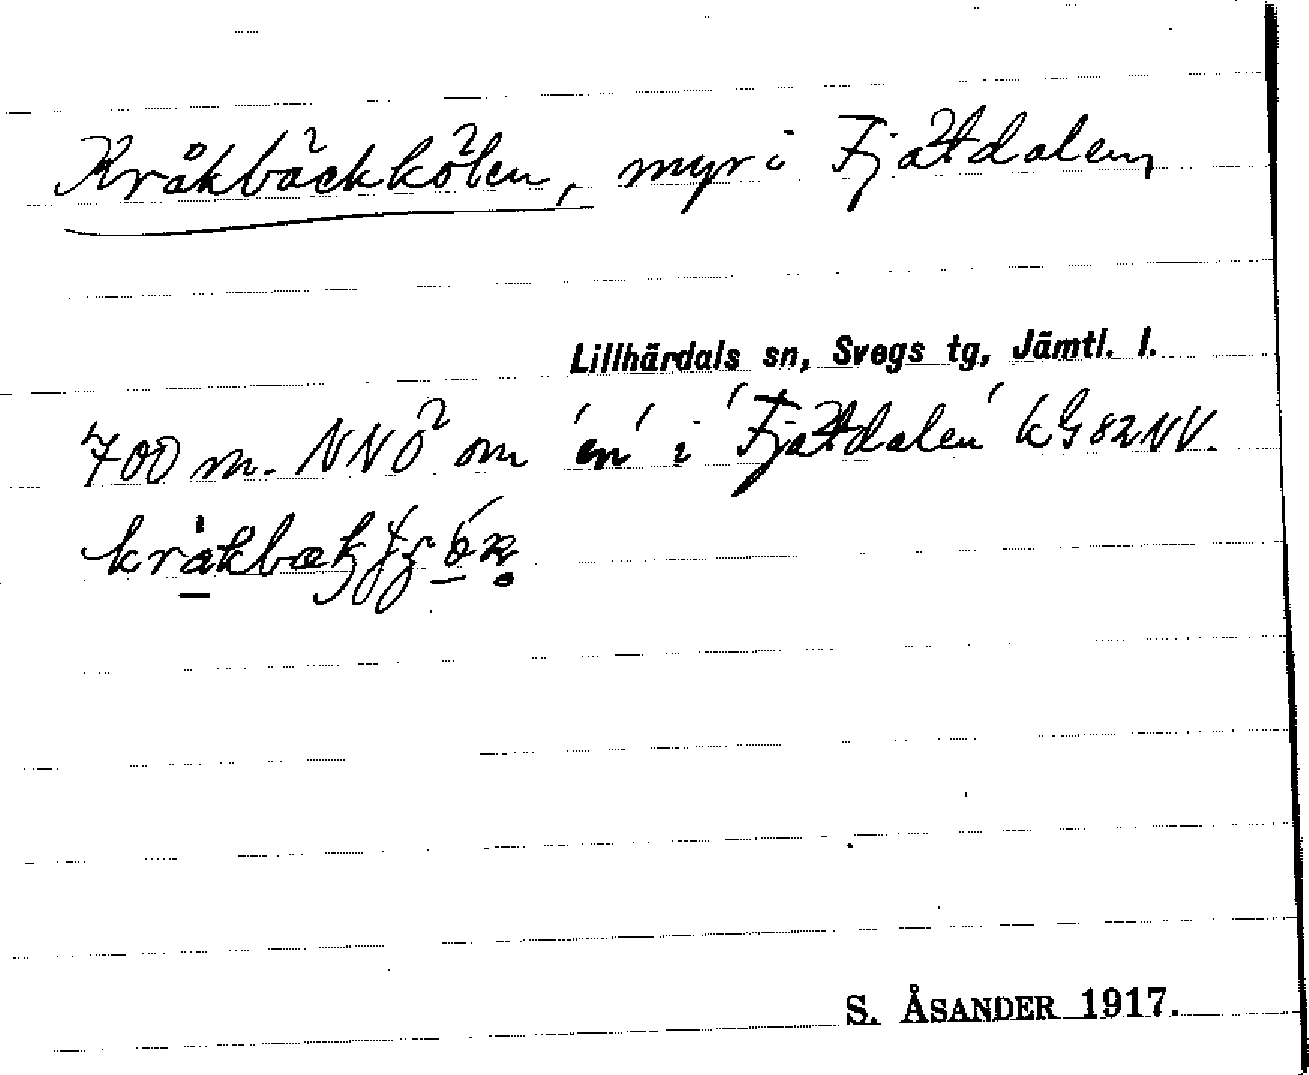 Kråkbäckkölen, myr i Fjätdalen,
Lillhärdals sn, Svegs tg, Jämtl. l.
700 m. NNÖ om 'en' i 'Fjätdalen' kG82NV.
S. ÅSANDER 1917.